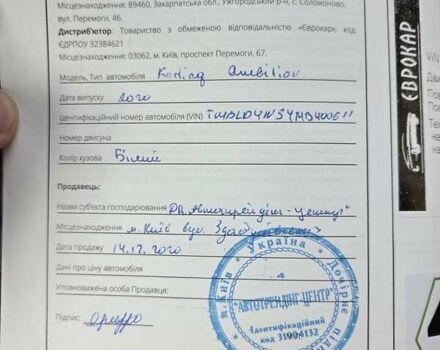 Місцезнаходження: 89460, Закарпатська обл., Ужгородський р-н, с. Соломоново,
вул. Перемоги, 46.
Дистриб'ютор: Товариство з обмеженою відповідальністю «Єврокар», код
ЄДРПОУ 32384621
Місцезнаходження: 03062, м. Київ, проспект Перемоги, 67.
Модель, Тип автомобіля Kodiaq Ambition
Дата випуску 2020
Ідентифікаційний номер автомобіля (VIN)
Номер двигуна
Колір кузова Білий
Продавець:
Назва суб'єкта господарювання
Місцезнаходження м. Київ вул.
Дата продажу 14.12.2020
Дані про ціну автомобіля
Уповноважена особа Продавця:
Підпис:
Україна
м. Київ
Дочірнє
"АВТОТРЕЙДІНГ-ЦЕНТР"
Ідентифікаційний
код 31904132
ЄВРОКАР
VIN